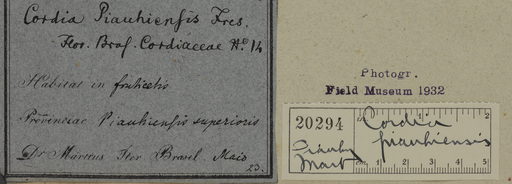 Cordia Piauhiensis Fres.
Flor. Bras. Cordiaceae No. 14
Habitat in fruticetis
Provinciae Piauhiensis superioris
Dr Martius Iter Brasil Majo
23.
Photogr.
Field Museum 1932
20294
Cordia
piauhiensis
Mart
1 2
cm 1 2 3 4 5